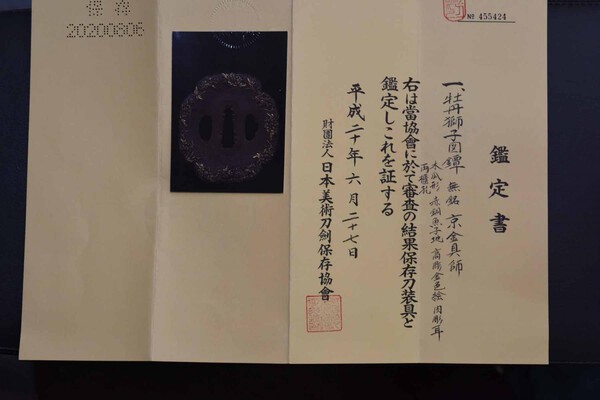 Nº 455424
鑑定書
一、牡丹獅子図鐔 無銘 京金具師
木瓜形 赤銅魚子地 高彫金色絵 肉彫耳
両櫃孔
右は當協會に於て審査の結果保存刀装具と
鑑定しこれを証する
平成二十年六月二十七日
財團法人 日本美術刀劍保存協會
保存
20200606